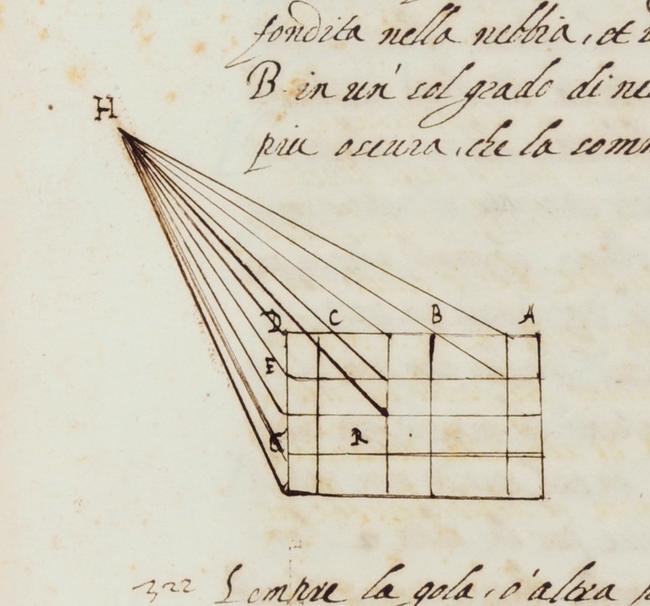 fondita nella nebbia, et
B in un' sol grado di ne
piu oscura, che la som
H
D C B A
E
G R
322 Sempre la gola, o' altra